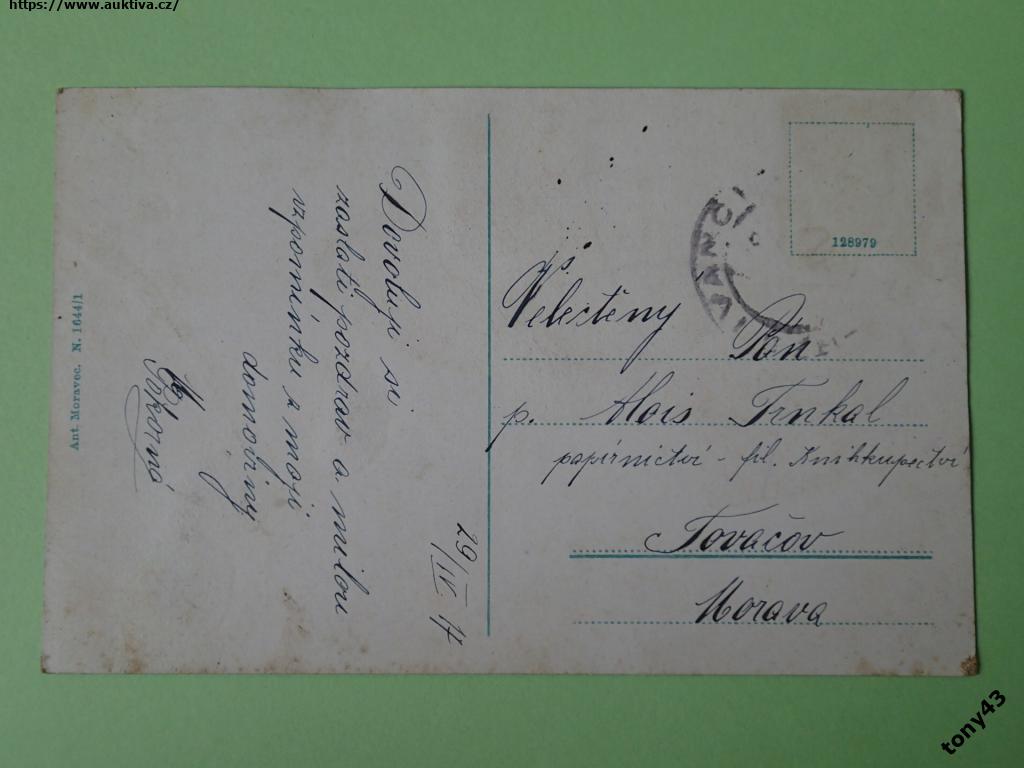 https://www.auktiva.cz/
29/IV 17
Dovoluji si
zaslati pozdrav a milou
vzpomínku z mojí
domoviny
Pokorná
Ant. Moravec. N. 1644/1
128979
Velectěný
Pán
p. Alois Trnkal
papírnictví - fil. Knihkupectví
Tovačov
Morava
tony43